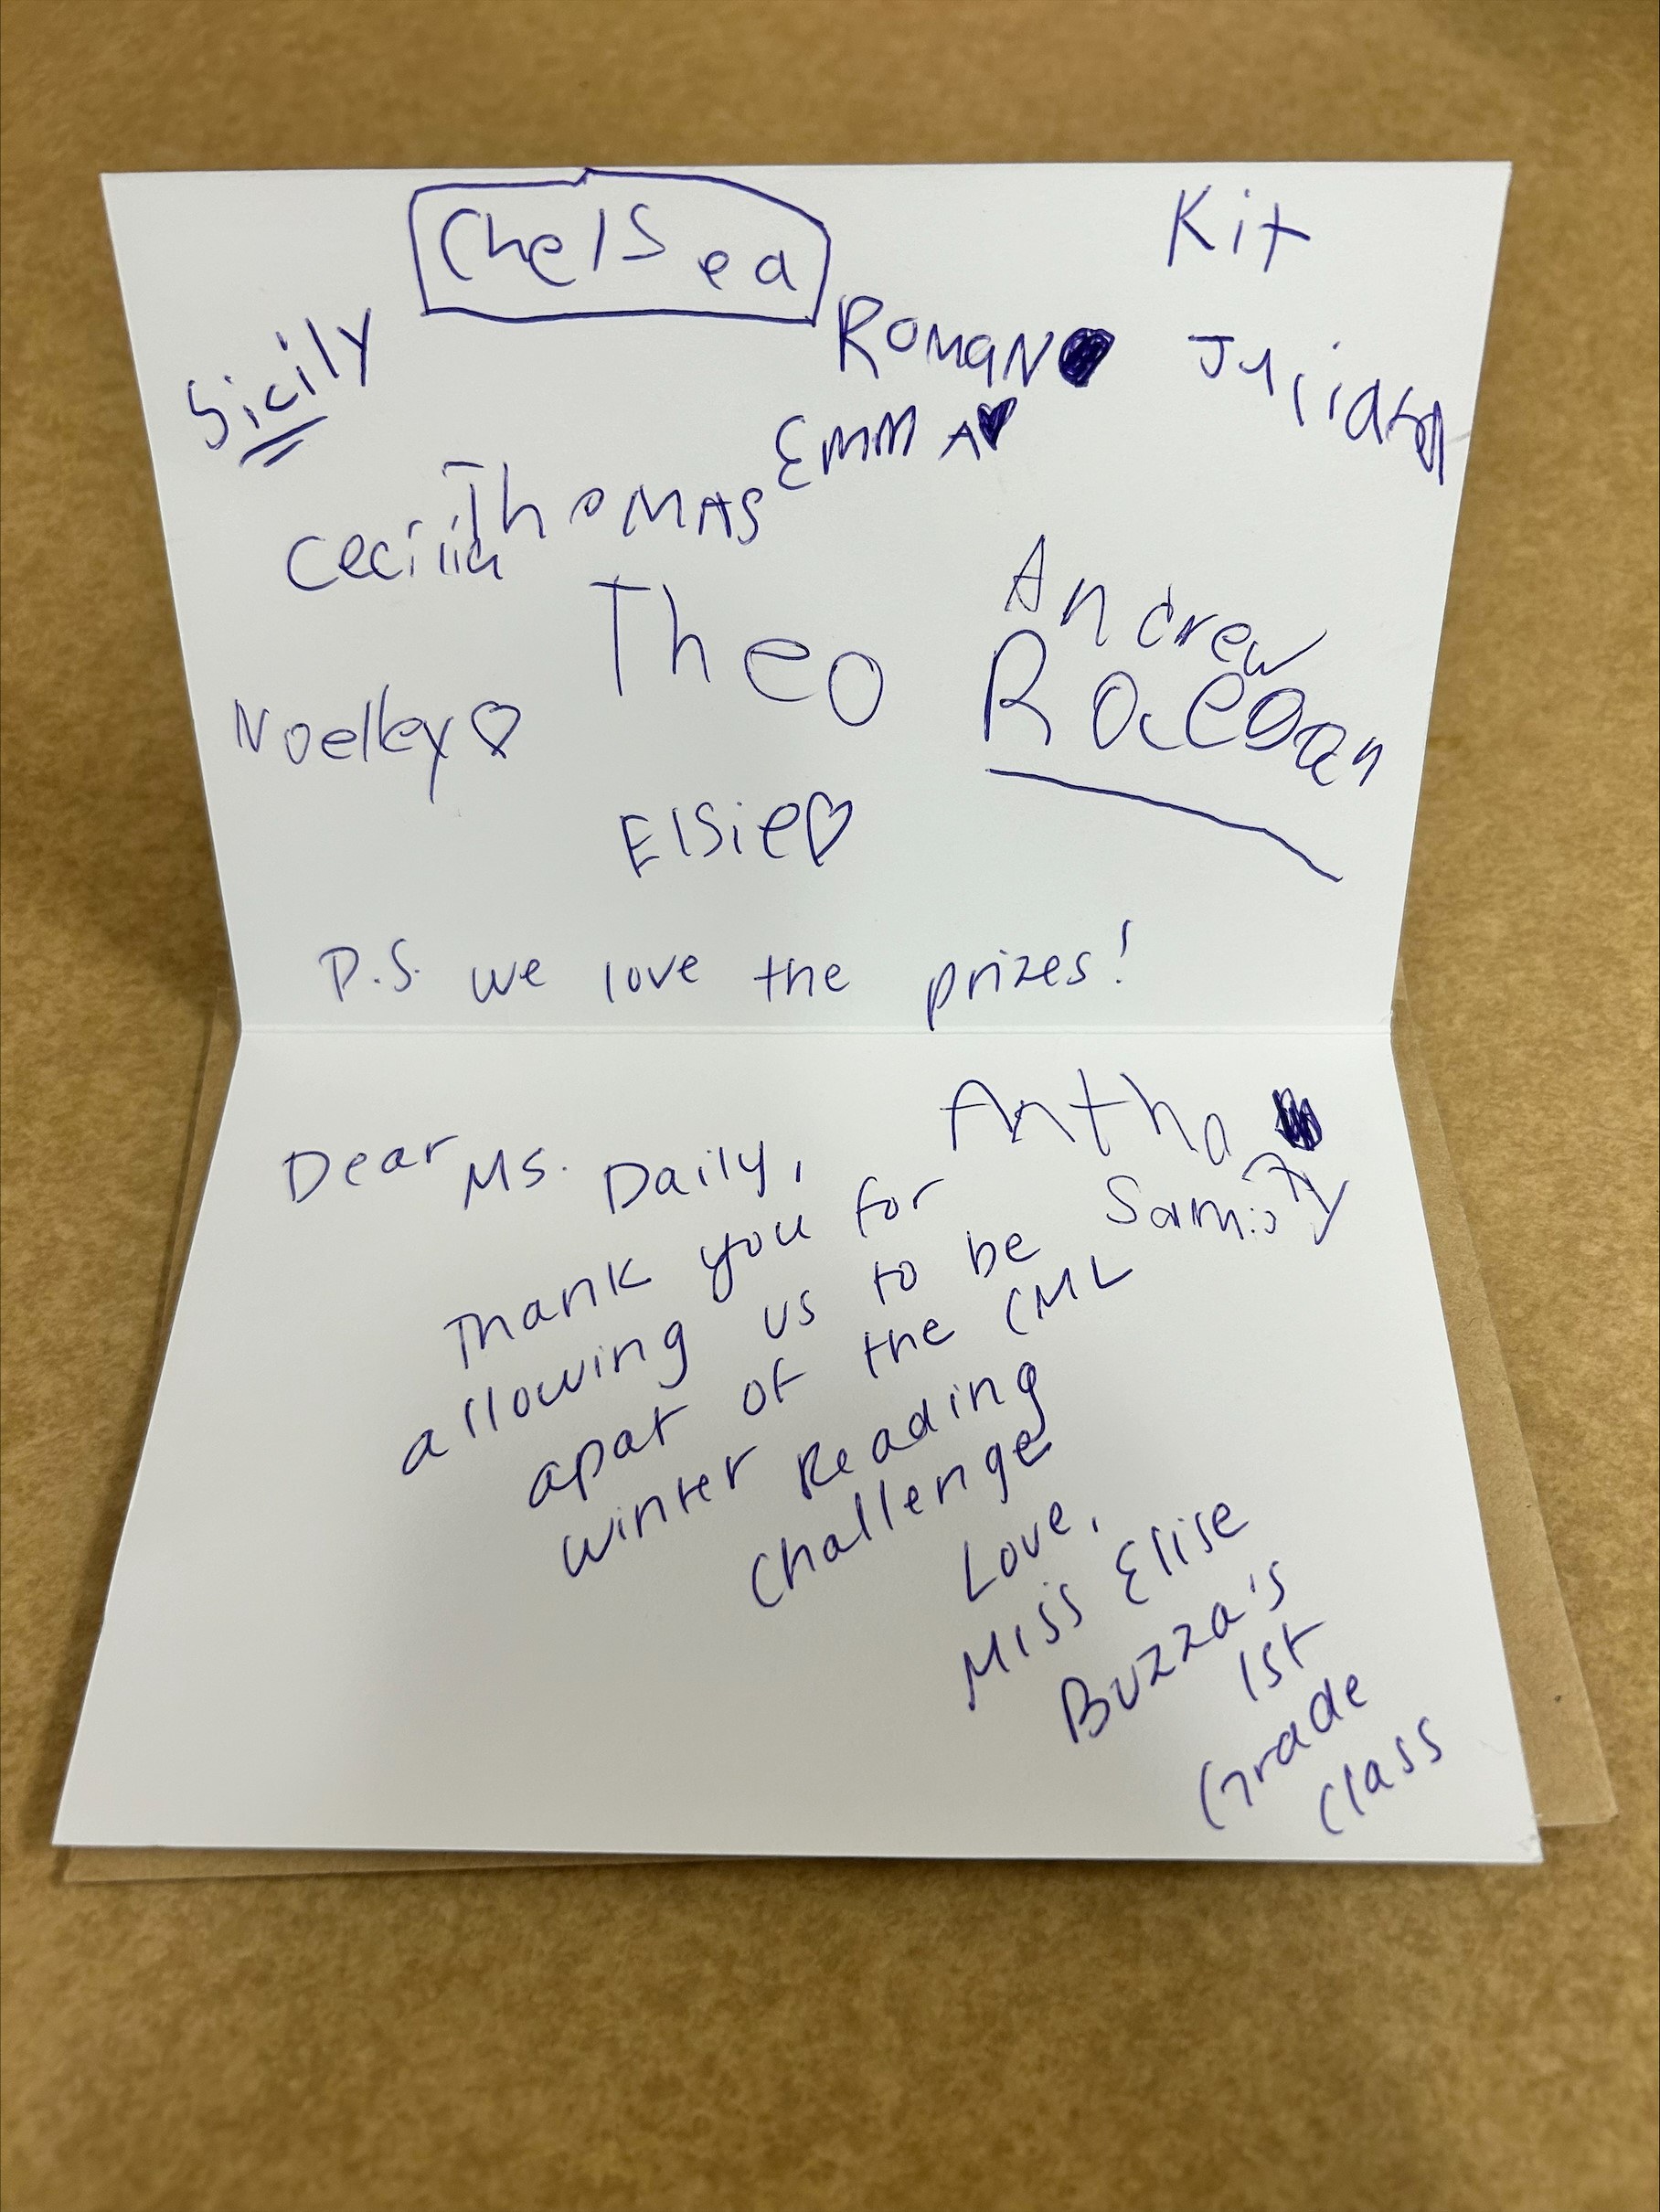 Chelsea
Kit
Sicily
Roman
Julian
Emma
Thomas
Cecilia
Andrew
Theo
Noelley
Elsie
P.S. we love the prizes!
Antho ny
Dear Ms. Daily,
Thank you for
allowing us to be
apart of the CML
Winter Reading
Challenge
Love,
Miss Elise
Buzza's
1st
Grade
Class